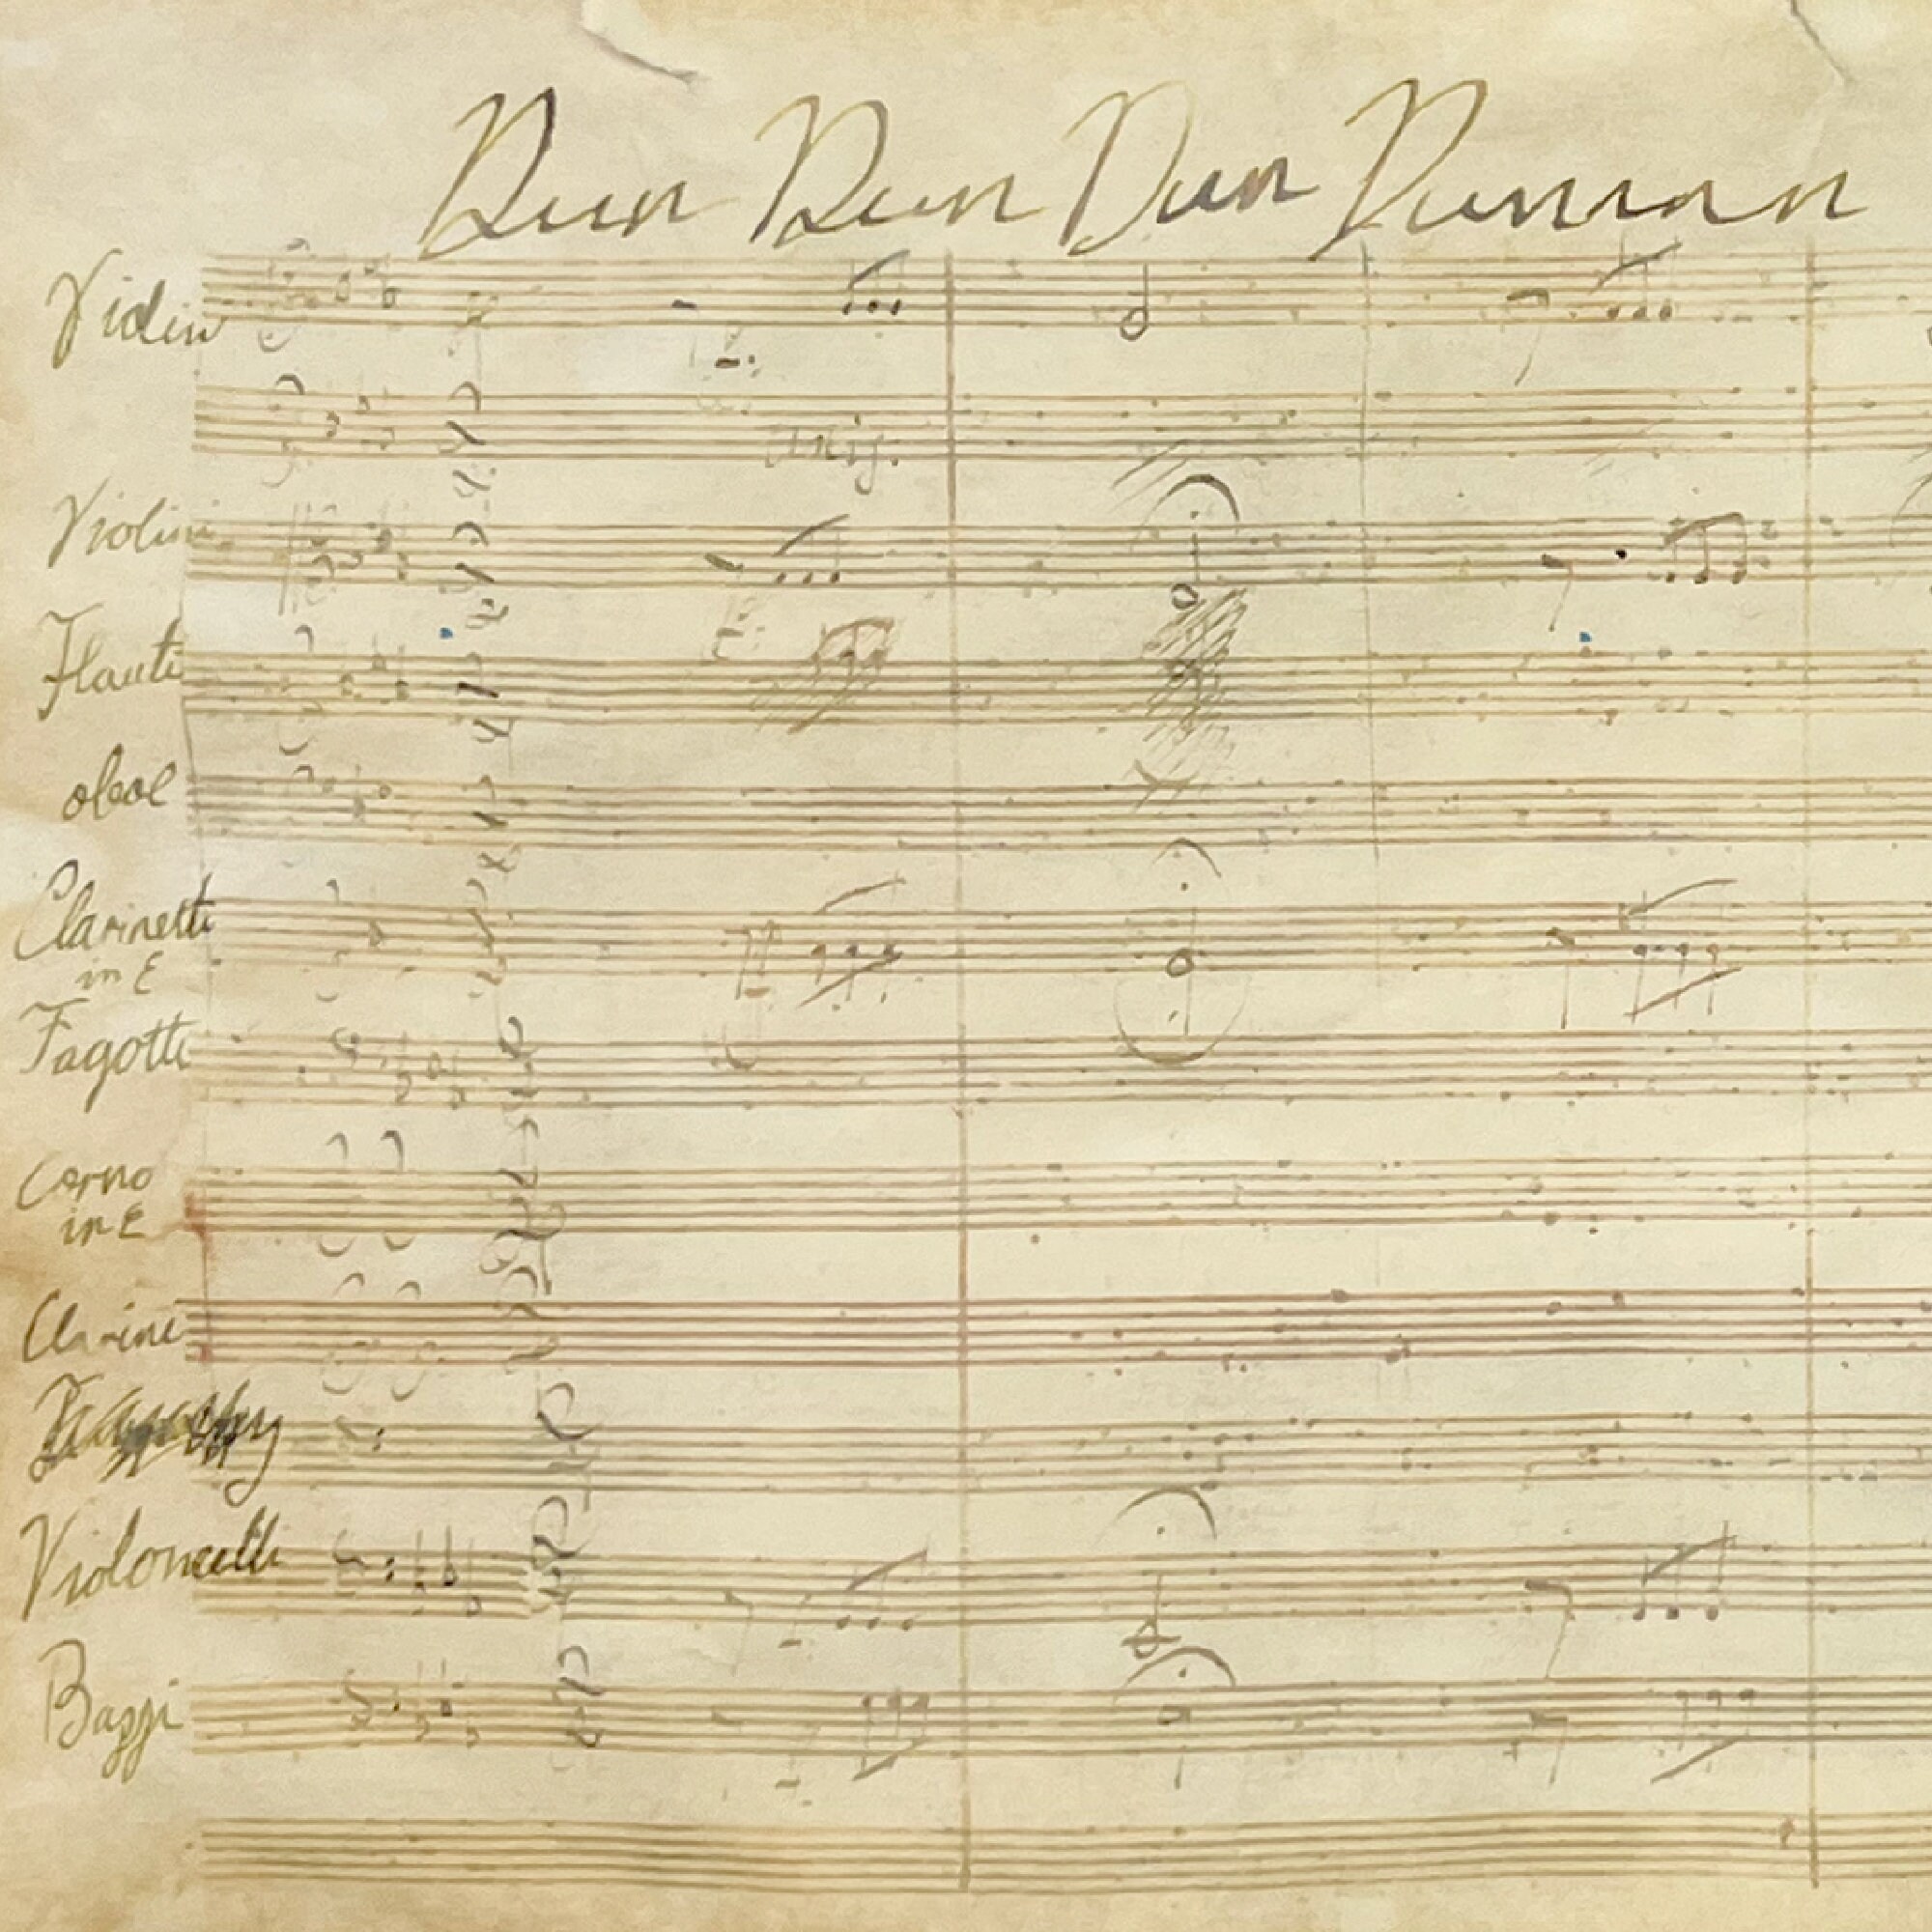 Dun Dun Dun Dunnnn
Violin
unis.
Violini
Flauti
oboe
Clarinetti
in E
Fagotti
Corno
in E
Clarini
Violoncelli
Bassi